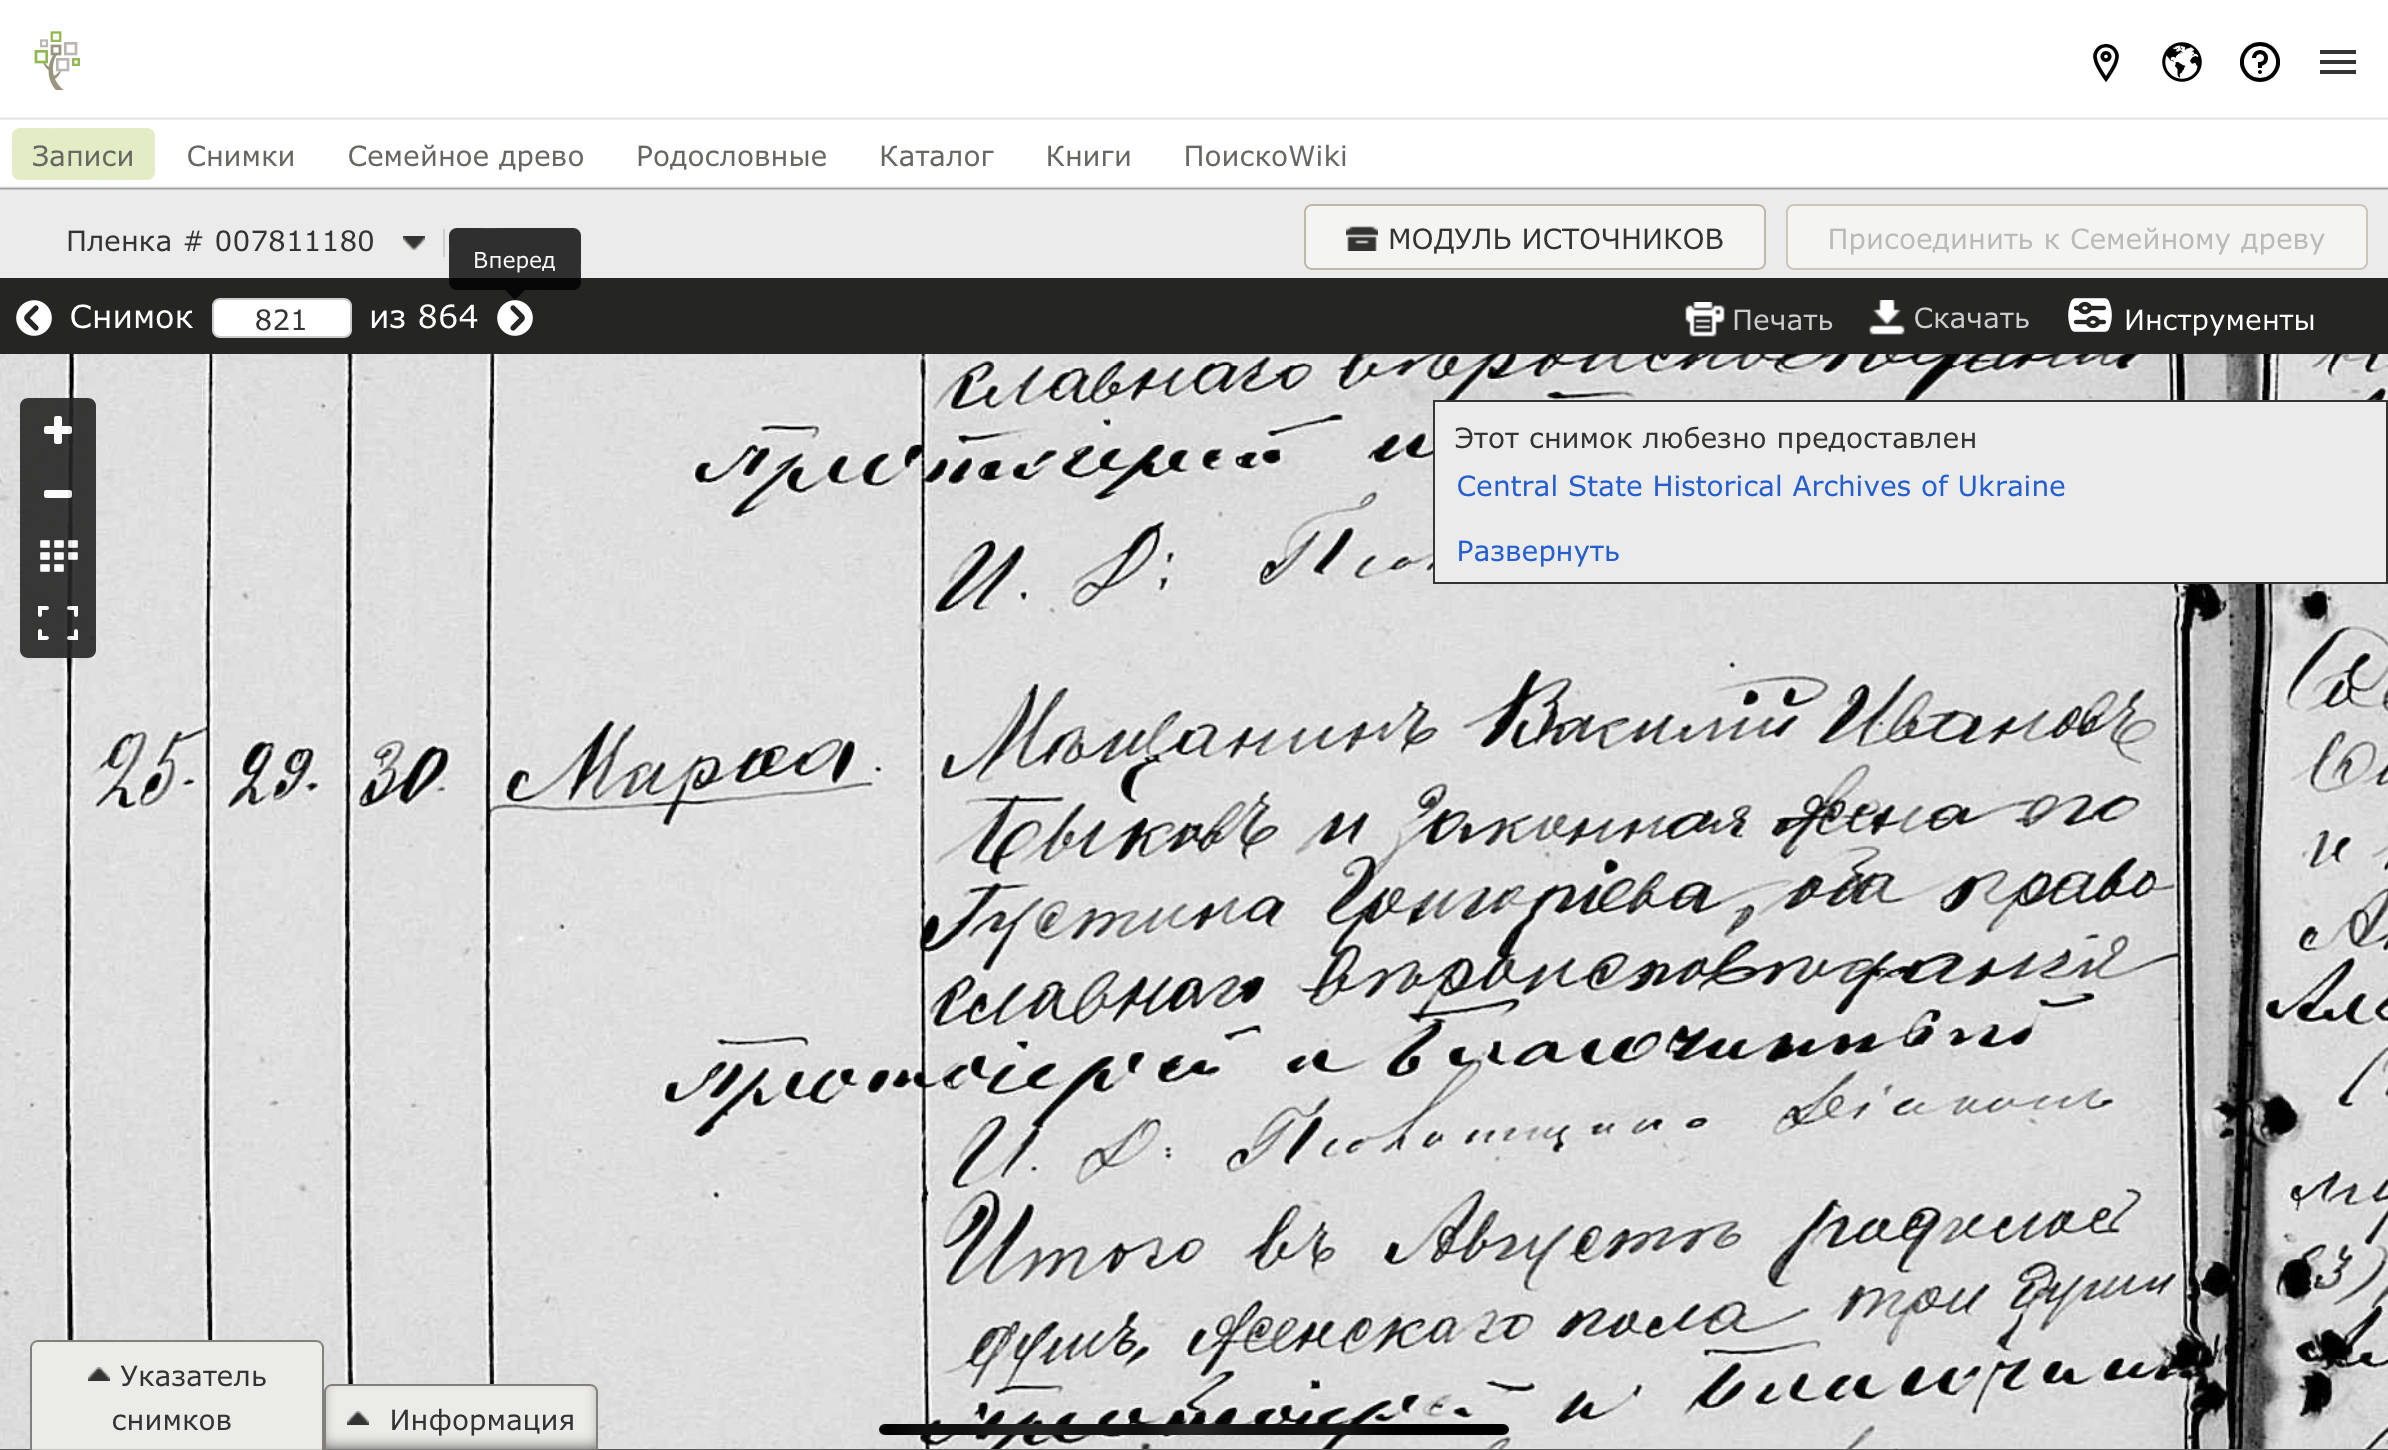 Записи Снимки Семейное древо Родословные Каталог Книги ПоискоWiki
Пленка # 007811180
Вперед
МОДУЛЬ ИСТОЧНИКОВ
Присоединить к Семейному древу
Снимок 821 из 864
Печать Скачать Инструменты
славнаго вѣроисповѣданія
Протоіерей и
Этот снимок любезно предоставлен
Central State Historical Archives of Ukraine
И. Д:
Развернуть
25. 29. 30. Марѳа. Мѣщанинъ Василій Ивановъ
Быковъ и законная жена его
Густина Григоріева, оба право
славнаго вѣроисповѣданія
Протоіерей и Благочинный
И. Д: Псаломщика Діаконъ
Итого въ Августѣ родилось
душъ, женскаго пола три души
Протоіерей и Благочин
Указатель
снимков
Информация